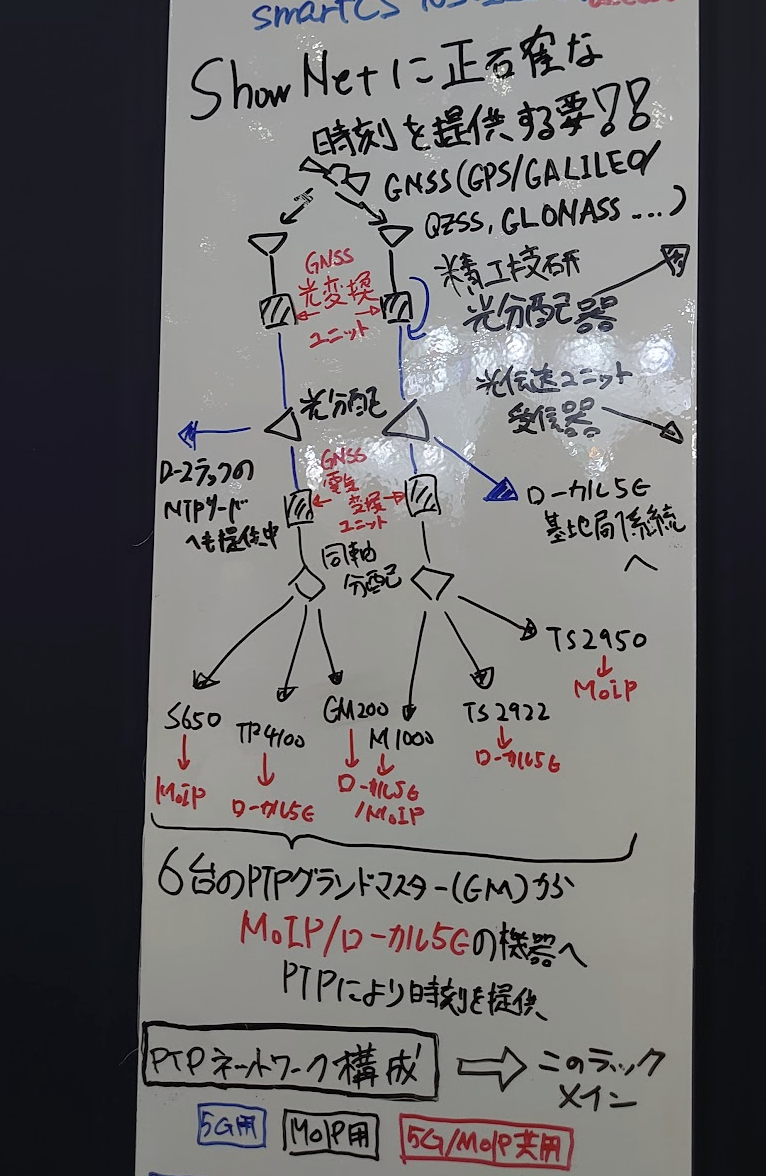 smartCS
ShowNetに正確な
時刻を提供する要!?
GNSS(GPS/GALILEO/
QZSS, GLONASS ....)
GNSS
光変換
ユニット
精工技研
光分配器
光伝送ユニット
受信器
光分配
D-2ラックの
NTPサード
へも提供中
GNSS
電気
変換
ユニット
ローカル5G
基地局係統
へ
同軸
分配
TS2950
MoIP
S650
TP4100
GM200
M1000
TS2922
ローカル5G
MoIP
ローカル5G
ローカル5G
/MoIP
6台のPTPグランドマスター(GM)から
MoIP/ローカル5Gの機器へ
PTPにより時刻を提供
PTPネットワーク構成
このラック
メイン
5G用
MoIP用
5G/MoIP共用